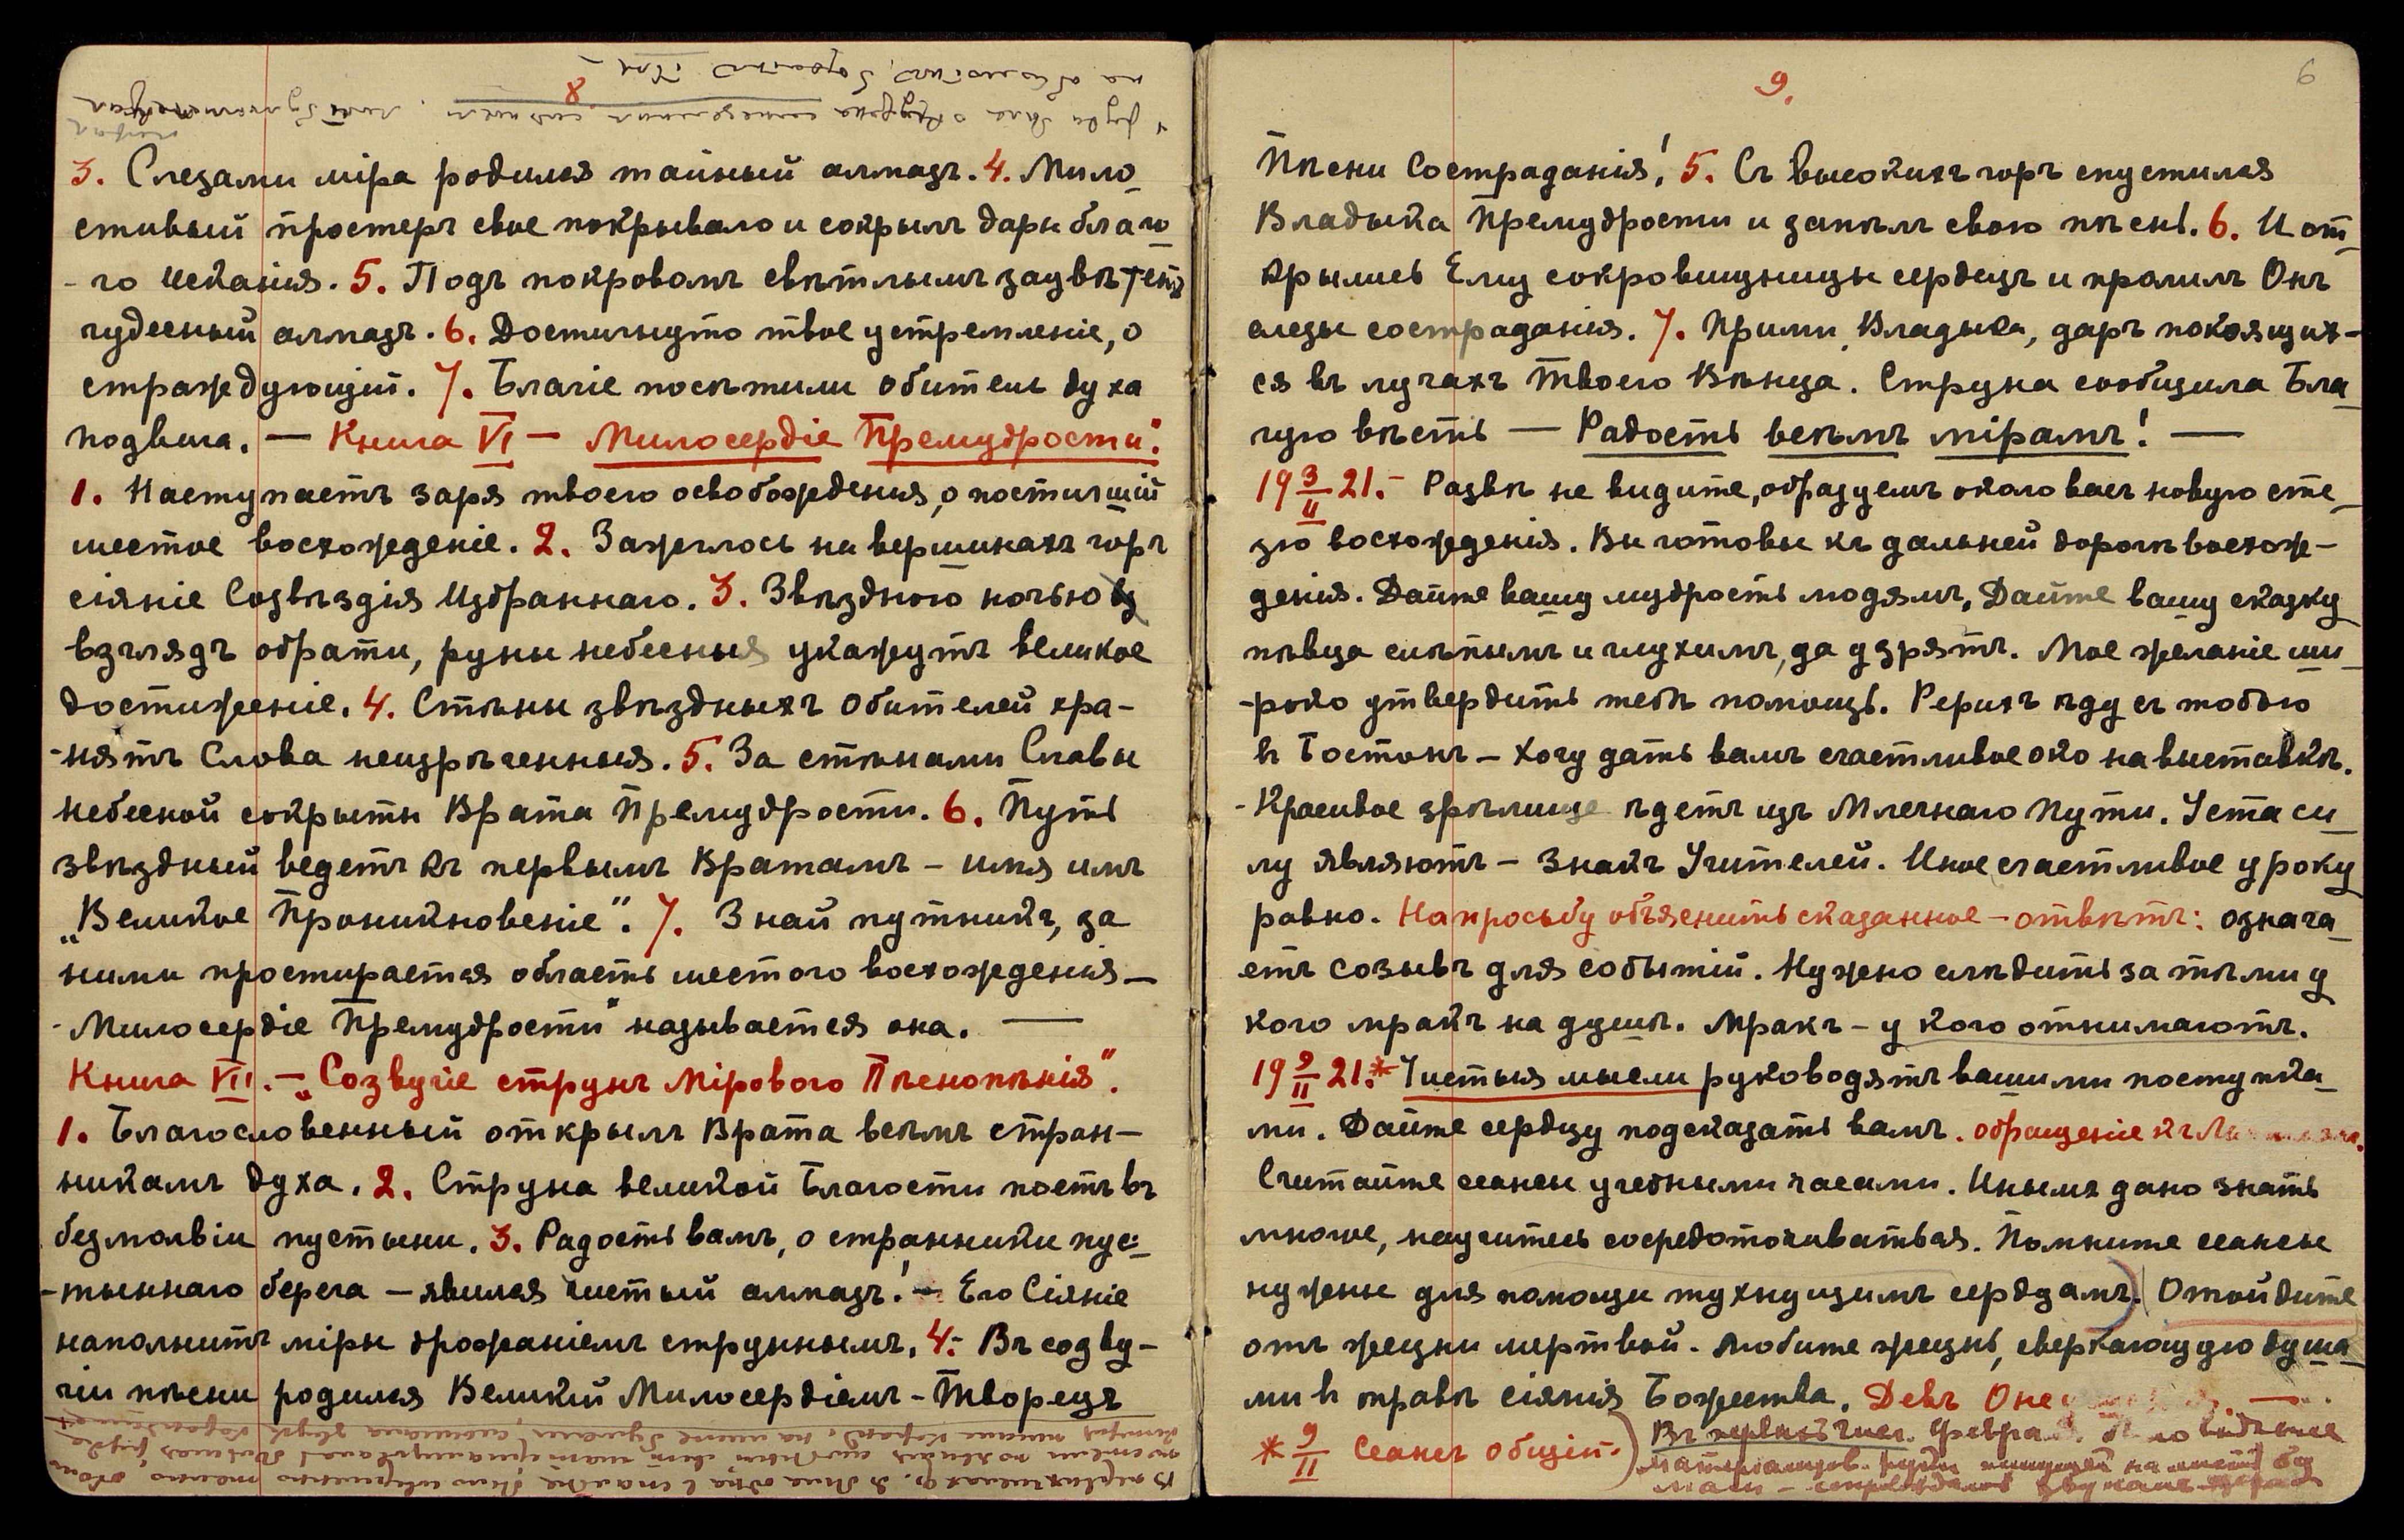 8
3. Слезами міра родился тайный алмазъ. 4. Мило_
стивый простеръ свое покрывало и сокрылъ дары благо
-го исканія. 5. Подъ покровомъ свѣтлымъ зацвѣтетъ
чудесный алмазъ. 6. Достигнуто твое устремленіе, о
страждующій. 7. Благіе посѣтили обитель духа
подвига. — Книга VI — Милосердіе Премудрости".
1. Наступаетъ заря твоего освобожденія, о постигшій
шестое восхожденіе. 2. Зажглось на вершинахъ горъ
сіяніе Созвѣздія Избраннаго. 3. Звѣздною ночью
взглядъ обрати, руны небесныя укажутъ великое
достиженіе. 4. Стѣны звѣздныхъ Обителей хра-
-нятъ Слова неизрѣченныя. 5. За стѣнами Славы
небесной сокрыты Врата Премудрости. 6. Путь
звѣздный ведетъ къ первымъ Вратамъ - имя имъ
„Великое Проникновеніе". 7. Знай путникъ, за
ними простирается область шестого восхожденія —
-Милосердіе Премудрости" называется она. —
Книга VII. — „Созвучіе струнъ Мірового Пѣснопѣнія".
1. Благословенный открылъ Врата всѣмъ стран-
никамъ духа. 2. Струна великой Благости поетъ въ
безмолвіи пустыни. 3. Радость вамъ, о странники пус_
-тыннаго берега — явился чистый алмазъ! — Его Сіяніе
наполнитъ міры дрожаніемъ струннымъ. 4. Въ созву-
чіи пѣсни родился Великій Милосердіемъ - Творецъ
9.
9
Пѣсни Состраданія! 5. Съ высокихъ горъ спустился
Владыка Премудрости и запѣлъ свою пѣснь. 6. И от_
крылись Ему сокровищницы сердецъ и пролилъ Онъ
слезы состраданія. 7. Прими, Владыка, даръ покоящих-
ся въ лучахъ Твоего Вѣнца. Струна сообщила Бла_
гую вѣсть — Радость всѣмъ мірамъ! —
19 3/II 21. - Развѣ не видите, образуемъ около васъ новую сте_
зю восхожденія. Вы готовы къ дальней дорогѣ восхож-
денія. Дайте вашу мудрость людямъ, Дайте вашу сказку
пѣвца слѣпымъ и глухимъ, да узрятъ. Мое желаніе ши_
-роко утвердить тебѣ помощь. Рерихъ ѣду съ тобою
въ Бостонъ - хочу дать вамъ счастливое око на выставкѣ.
-Красивое зрѣлище ѣдетъ изъ Млечнаго Пути. Уста си_
лу являютъ - Знакъ Учителей. Иное счастливое уроку
равно. На просьбу объяснить сказанное - отвѣтъ: означа_
етъ созывъ для событій. Нужно слѣдить за тѣми у
кого мракъ на душѣ. Мракъ - у кого отнимаютъ.
19 9/II 21.* Чистыя мысли руководятъ вашими поступка_
ми. Дайте сердцу подсказать вамъ. обращеніе къ
Считайте сеансы учебными часами. Инымъ дано знать
многое, научитесь сосредоточиваться. Помните сеансы
нужны для помощи тухнущимъ сердцамъ. Отойдите
отъ жизни мертвой. Любите жизнь, сверкающую душа_
ми въ оправѣ сіянія Божества. Девъ
* 9/II Сеансъ общій.
Въ первыхъ числ. Февра